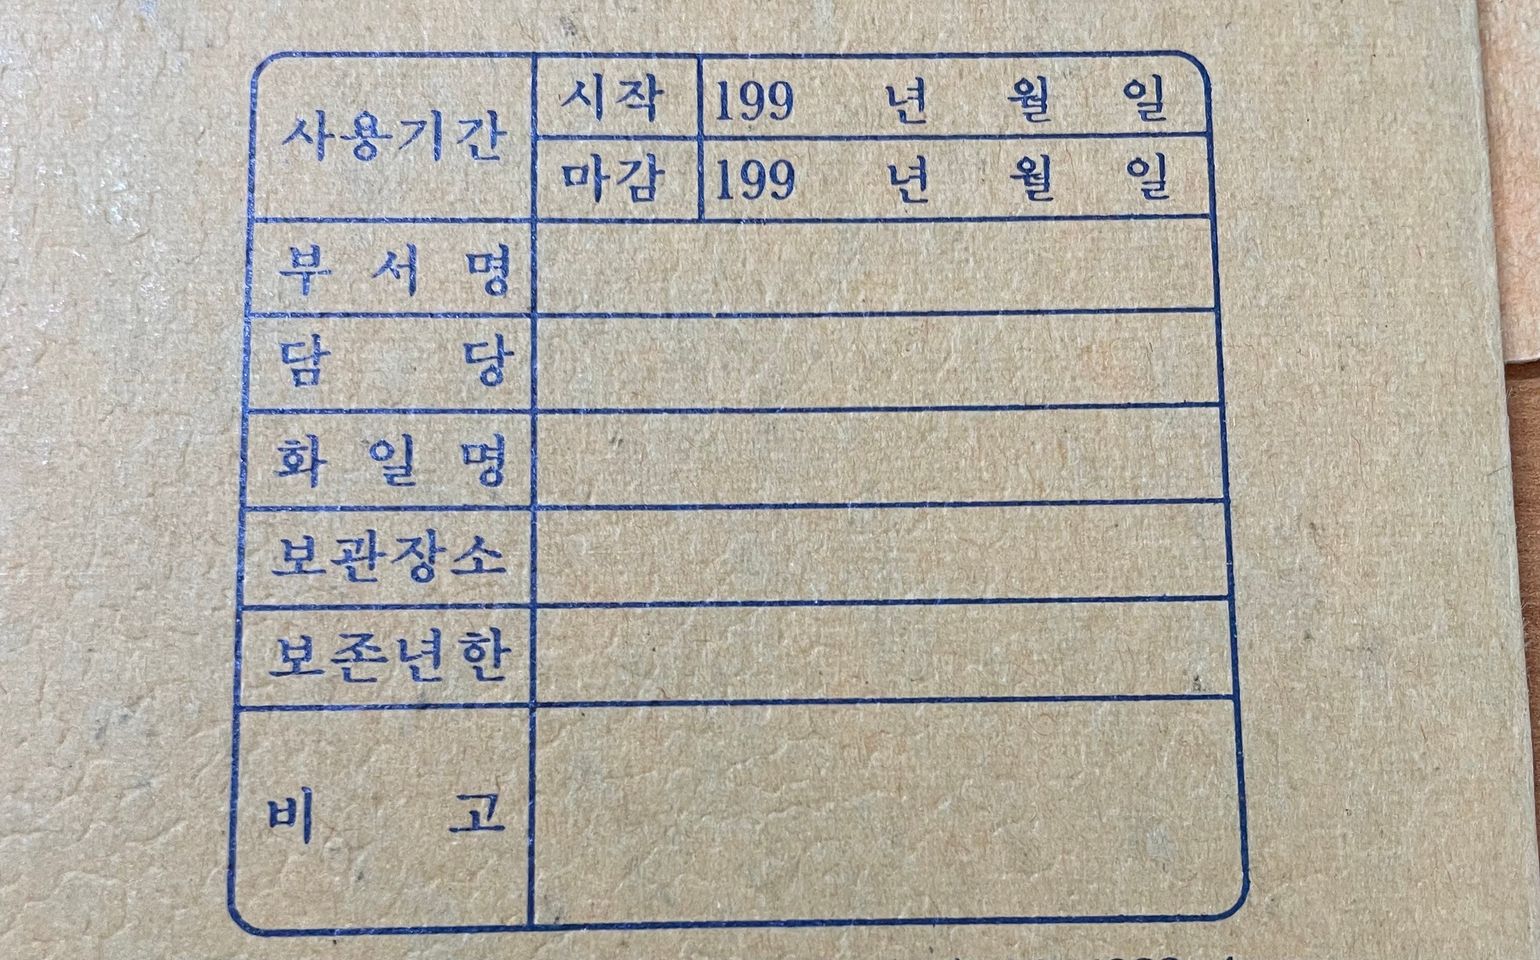 사용기간 시작 199 년 월 일
마감 199 년 월 일
부 서 명
담 당
화 일 명
보관장소
보존년한
비 고